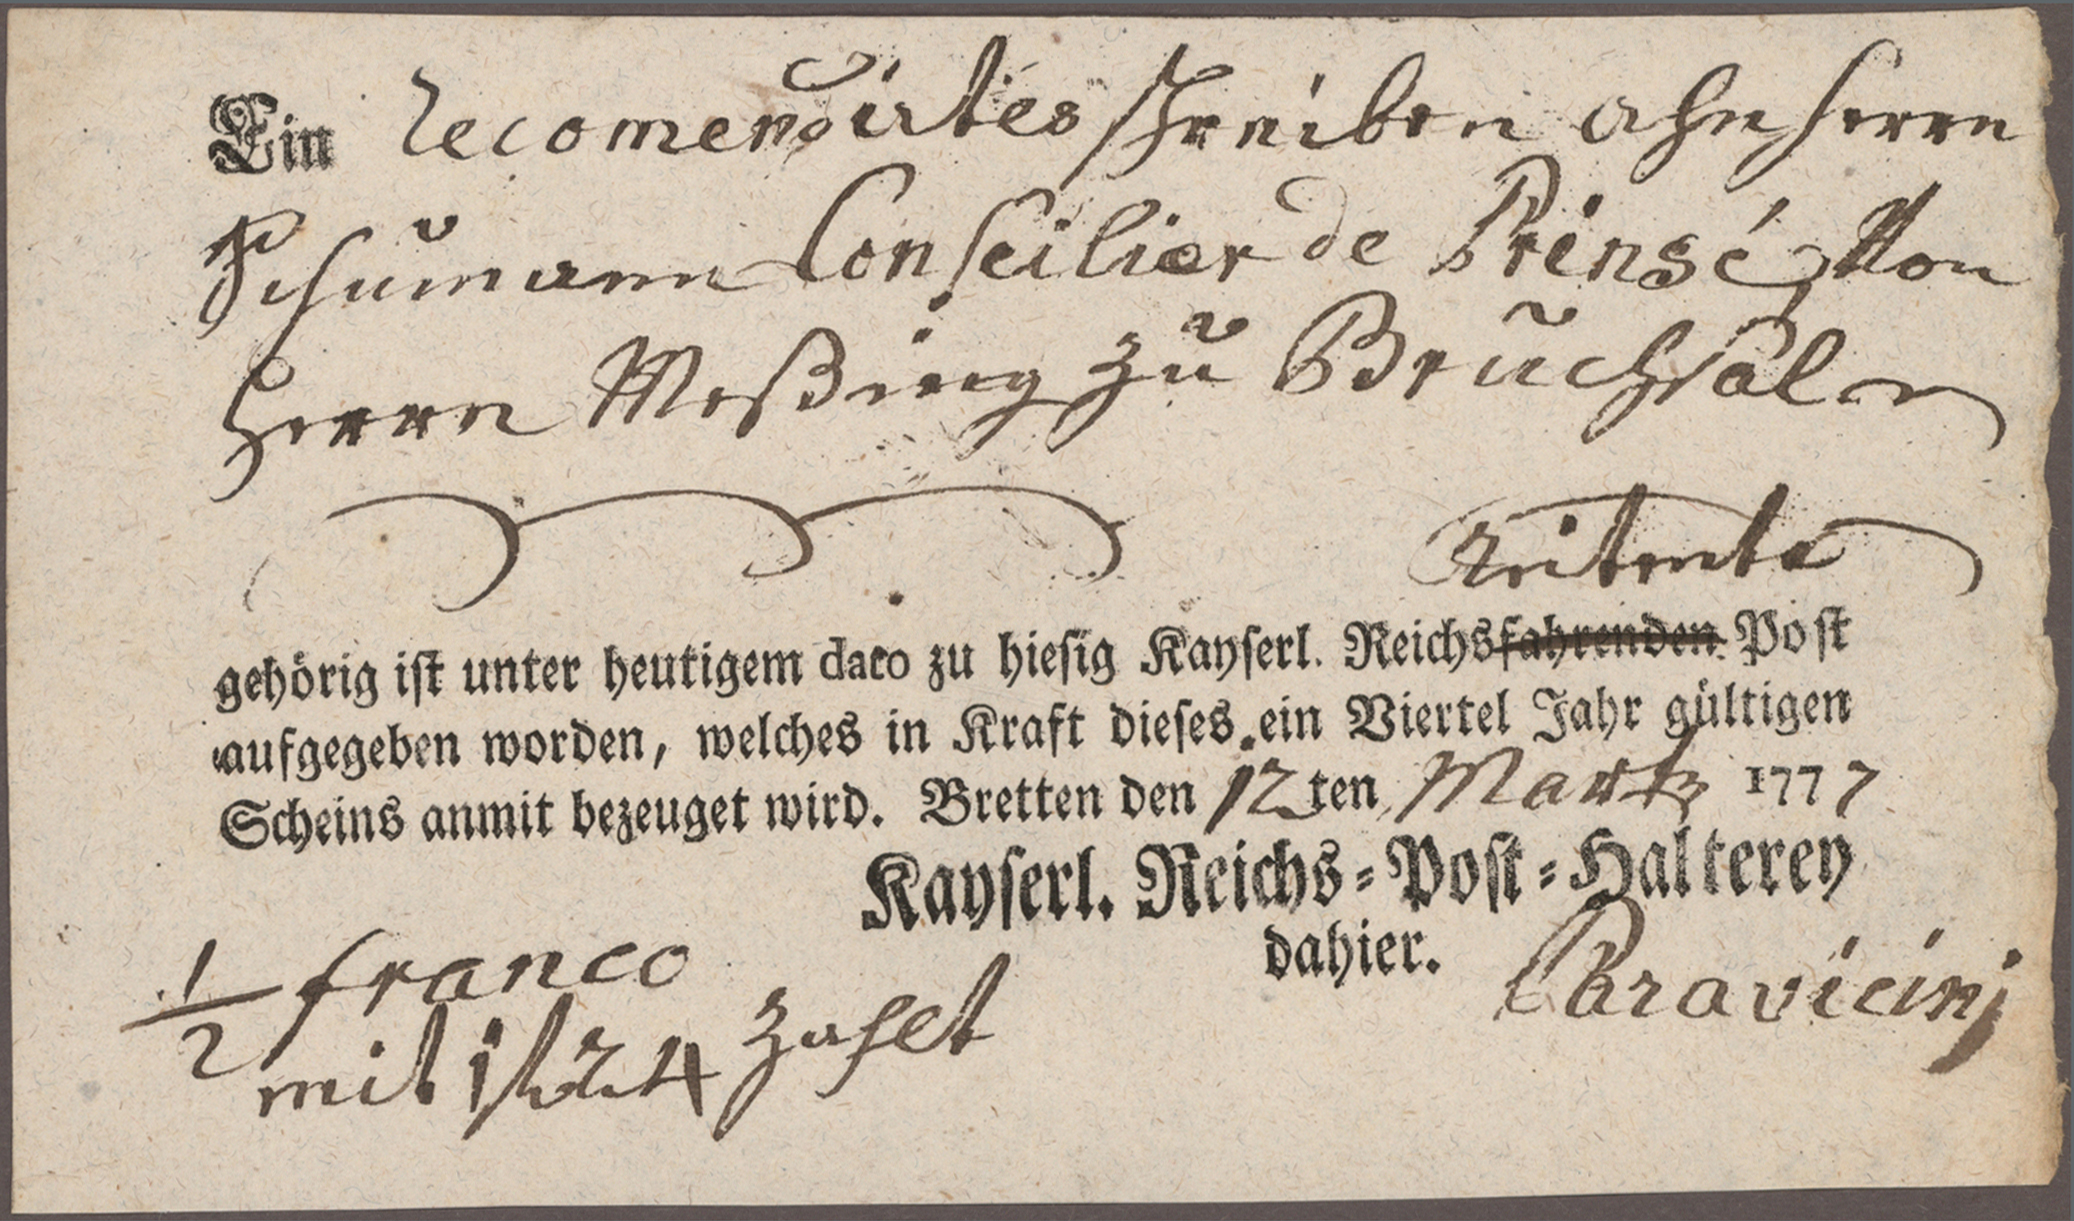 Ein recomendirtes schreiben ahn herrn
Schumann Conseilier de Prinsé Von
Herrn Meßing zu Bruchsal
reitente
gehörig ist unter heutigem dato zu hiesig Kayserl. Reichsfahrenden Post
aufgegeben worden, welches in Kraft dieses ein Viertel Jahr gültigen
Scheins anmit bezeuget wird. Bretten den 12ten Martz 1777
Kayserl. Reichs-Post-Halterey
dahier. Paravicinj
1/2 franco
mit 24 zahlt